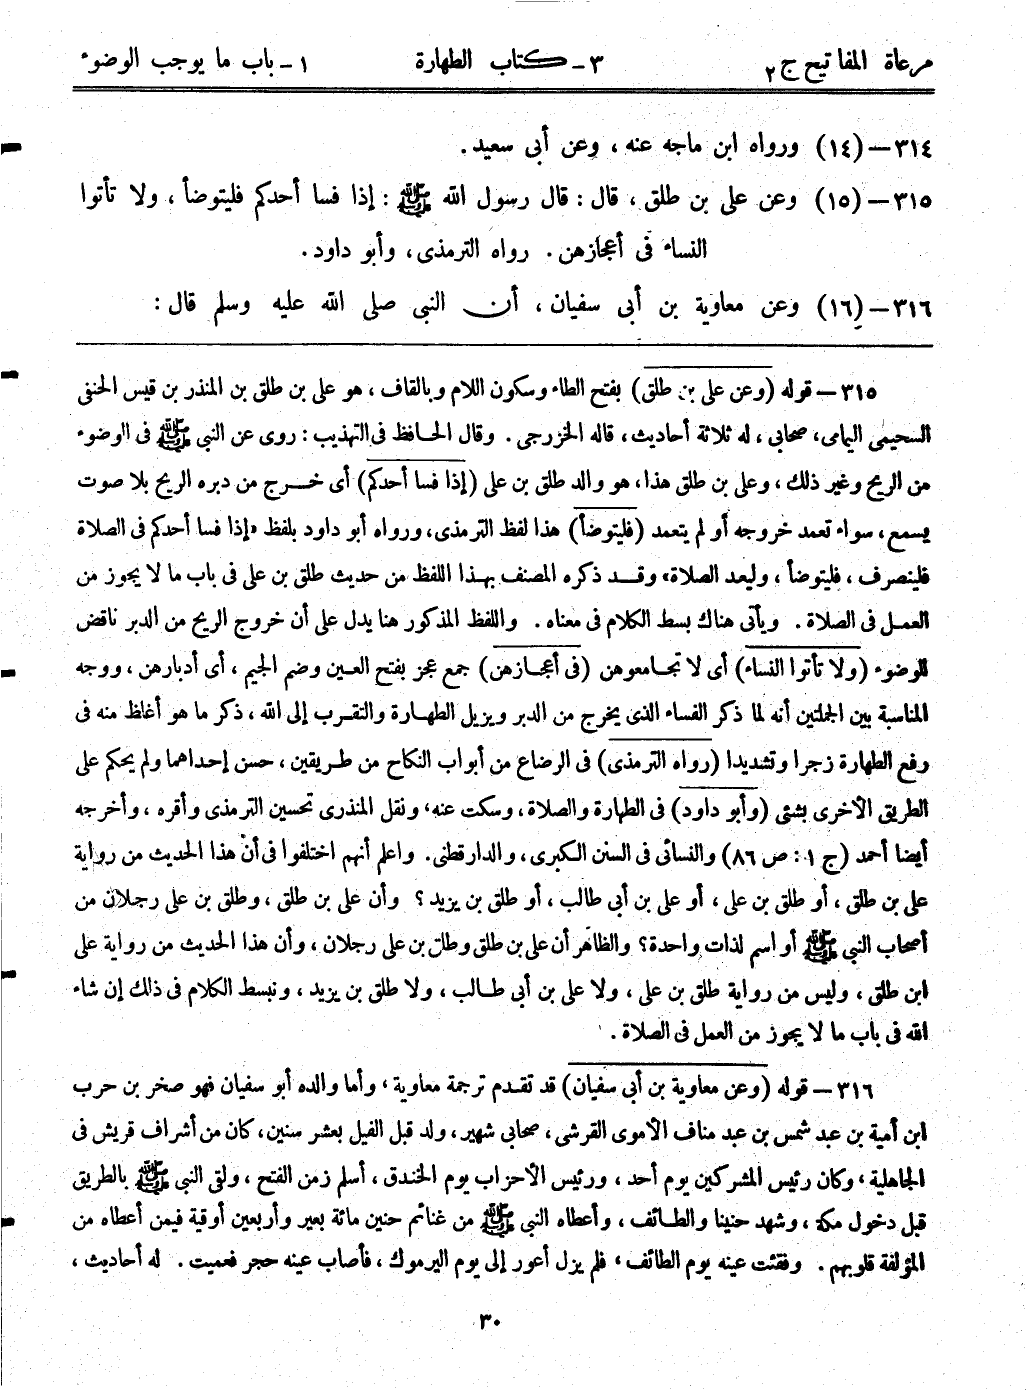 مرعاة المفاتيح ج ٢ ٣ - كتاب الطهارة ١ - باب ما يوجب الوضوء
٣١٤ – (١٤) ورواه ابن ماجه عنه ، وعن أبى سعيد .
٣١٥ – (١٥) وعن على بن طلق ، قال : قال رسول الله ﷺ : إذا فسا أحدكم فليتوضأ ، ولا تأتوا
النساء فى أعجازهن . رواه الترمذى ، وأبو داود .
٣١٦ – (١٦) وعن معاوية بن أبى سفيان ، أن النبى صلى الله عليه وسلم قال :
٣١٥ – قوله (وعن على بن طلق) بفتح الطاء وسكون اللام وبالقاف ، هو على بن طلق بن المنذر بن قيس الحنفى
السحيمى اليمامى ، صحابى ، له ثلاثة أحاديث ، قاله الخزرجى . وقال الحافظ فى التهذيب : روى عن النبى ﷺ فى الوضوء
من الريح وغير ذلك ، وعلى بن طلق هذا ، هو والد طلق بن على (إذا فسا أحدكم) أى خرج من دبره الريح بلا صوت
يسمع ، سواء تعمد خروجه أو لم يتعمد (فليتوضأ) هذا لفظ الترمذى ، ورواه أبو داود بلفظ «إذا فسا أحدكم فى الصلاة
فلينصرف ، فليتوضأ ، وليعد الصلاة» وقد ذكره المصنف بهذا اللفظ من حديث طلق بن على فى باب ما لا يجوز من
العمل فى الصلاة . ويأتى هناك بسط الكلام فى معناه . واللفظ المذكور هنا يدل على أن خروج الريح من الدبر ناقض
للوضوء (ولا تأتوا النساء) أى لا تجامعوهن (فى أعجازهن) جمع عجز بفتح العين وضم الجيم ، أى أدبارهن ، ووجه
المناسبة بين الجملتين أنه لما ذكر الفساء الذى يخرج من الدبر ويزيل الطهارة والتقرب إلى الله ، ذكر ما هو أغلظ منه فى
رفع الطهارة زجرا وتشديدا (رواه الترمذى) فى الرضاع من أبواب النكاح من طريقين ، حسن إحداهما ولم يحكم على
الطريق الأخرى بشئى (وأبو داود) فى الطهارة والصلاة ، وسكت عنه ، ونقل المنذرى تحسين الترمذى وأقره ، وأخرجه
أيضا أحمد (ج ١ : ص ٨٦) والنسائى فى السنن الكبرى ، والدارقطنى . واعلم أنهم اختلفوا فى أن هذا الحديث من رواية
على بن طلق ، أو طلق بن على ، أو على بن أبى طالب ، أو طلق بن يزيد ؟ وأن على بن طلق ، وطلق بن على رجلان من
أصحاب النبى ﷺ أو اسم لذات واحدة ؟ والظاهر أن على بن طلق وطلق بن على رجلان ، وأن هذا الحديث من رواية على
ابن طلق ، وليس من رواية طلق بن على ، ولا على بن أبى طالب ، ولا طلق بن يزيد ، ونبسط الكلام فى ذلك إن شاء
الله فى باب ما لا يجوز من العمل فى الصلاة .
٣١٦ – قوله (وعن معاوية بن أبى سفيان) قد تقدم ترجمة معاوية ، وأما والده أبو سفيان فهو صخر بن حرب
ابن أمية بن عبد شمس بن عبد مناف الأموى القرشى ، صحابى شهير ، ولد قبل الفيل بعشر سنين ، كان من أشراف قريش فى
الجاهلية ، وكان رئيس المشركين يوم أحد ، ورئيس الأحزاب يوم الخندق ، أسلم زمن الفتح ، ولقى النبى ﷺ بالطريق
قبل دخول مكة ، وشهد حنينا والطائف ، وأعطاه النبى ﷺ من غنائم حنين مائة بعير وأربعين أوقية فيمن أعطاه من
المؤلفة قلوبهم . وفقئت عينه يوم الطائف ، فلم يزل أعور إلى يوم اليرموك ، فأصاب عينه حجر فعميت . له أحاديث ،
٣٠